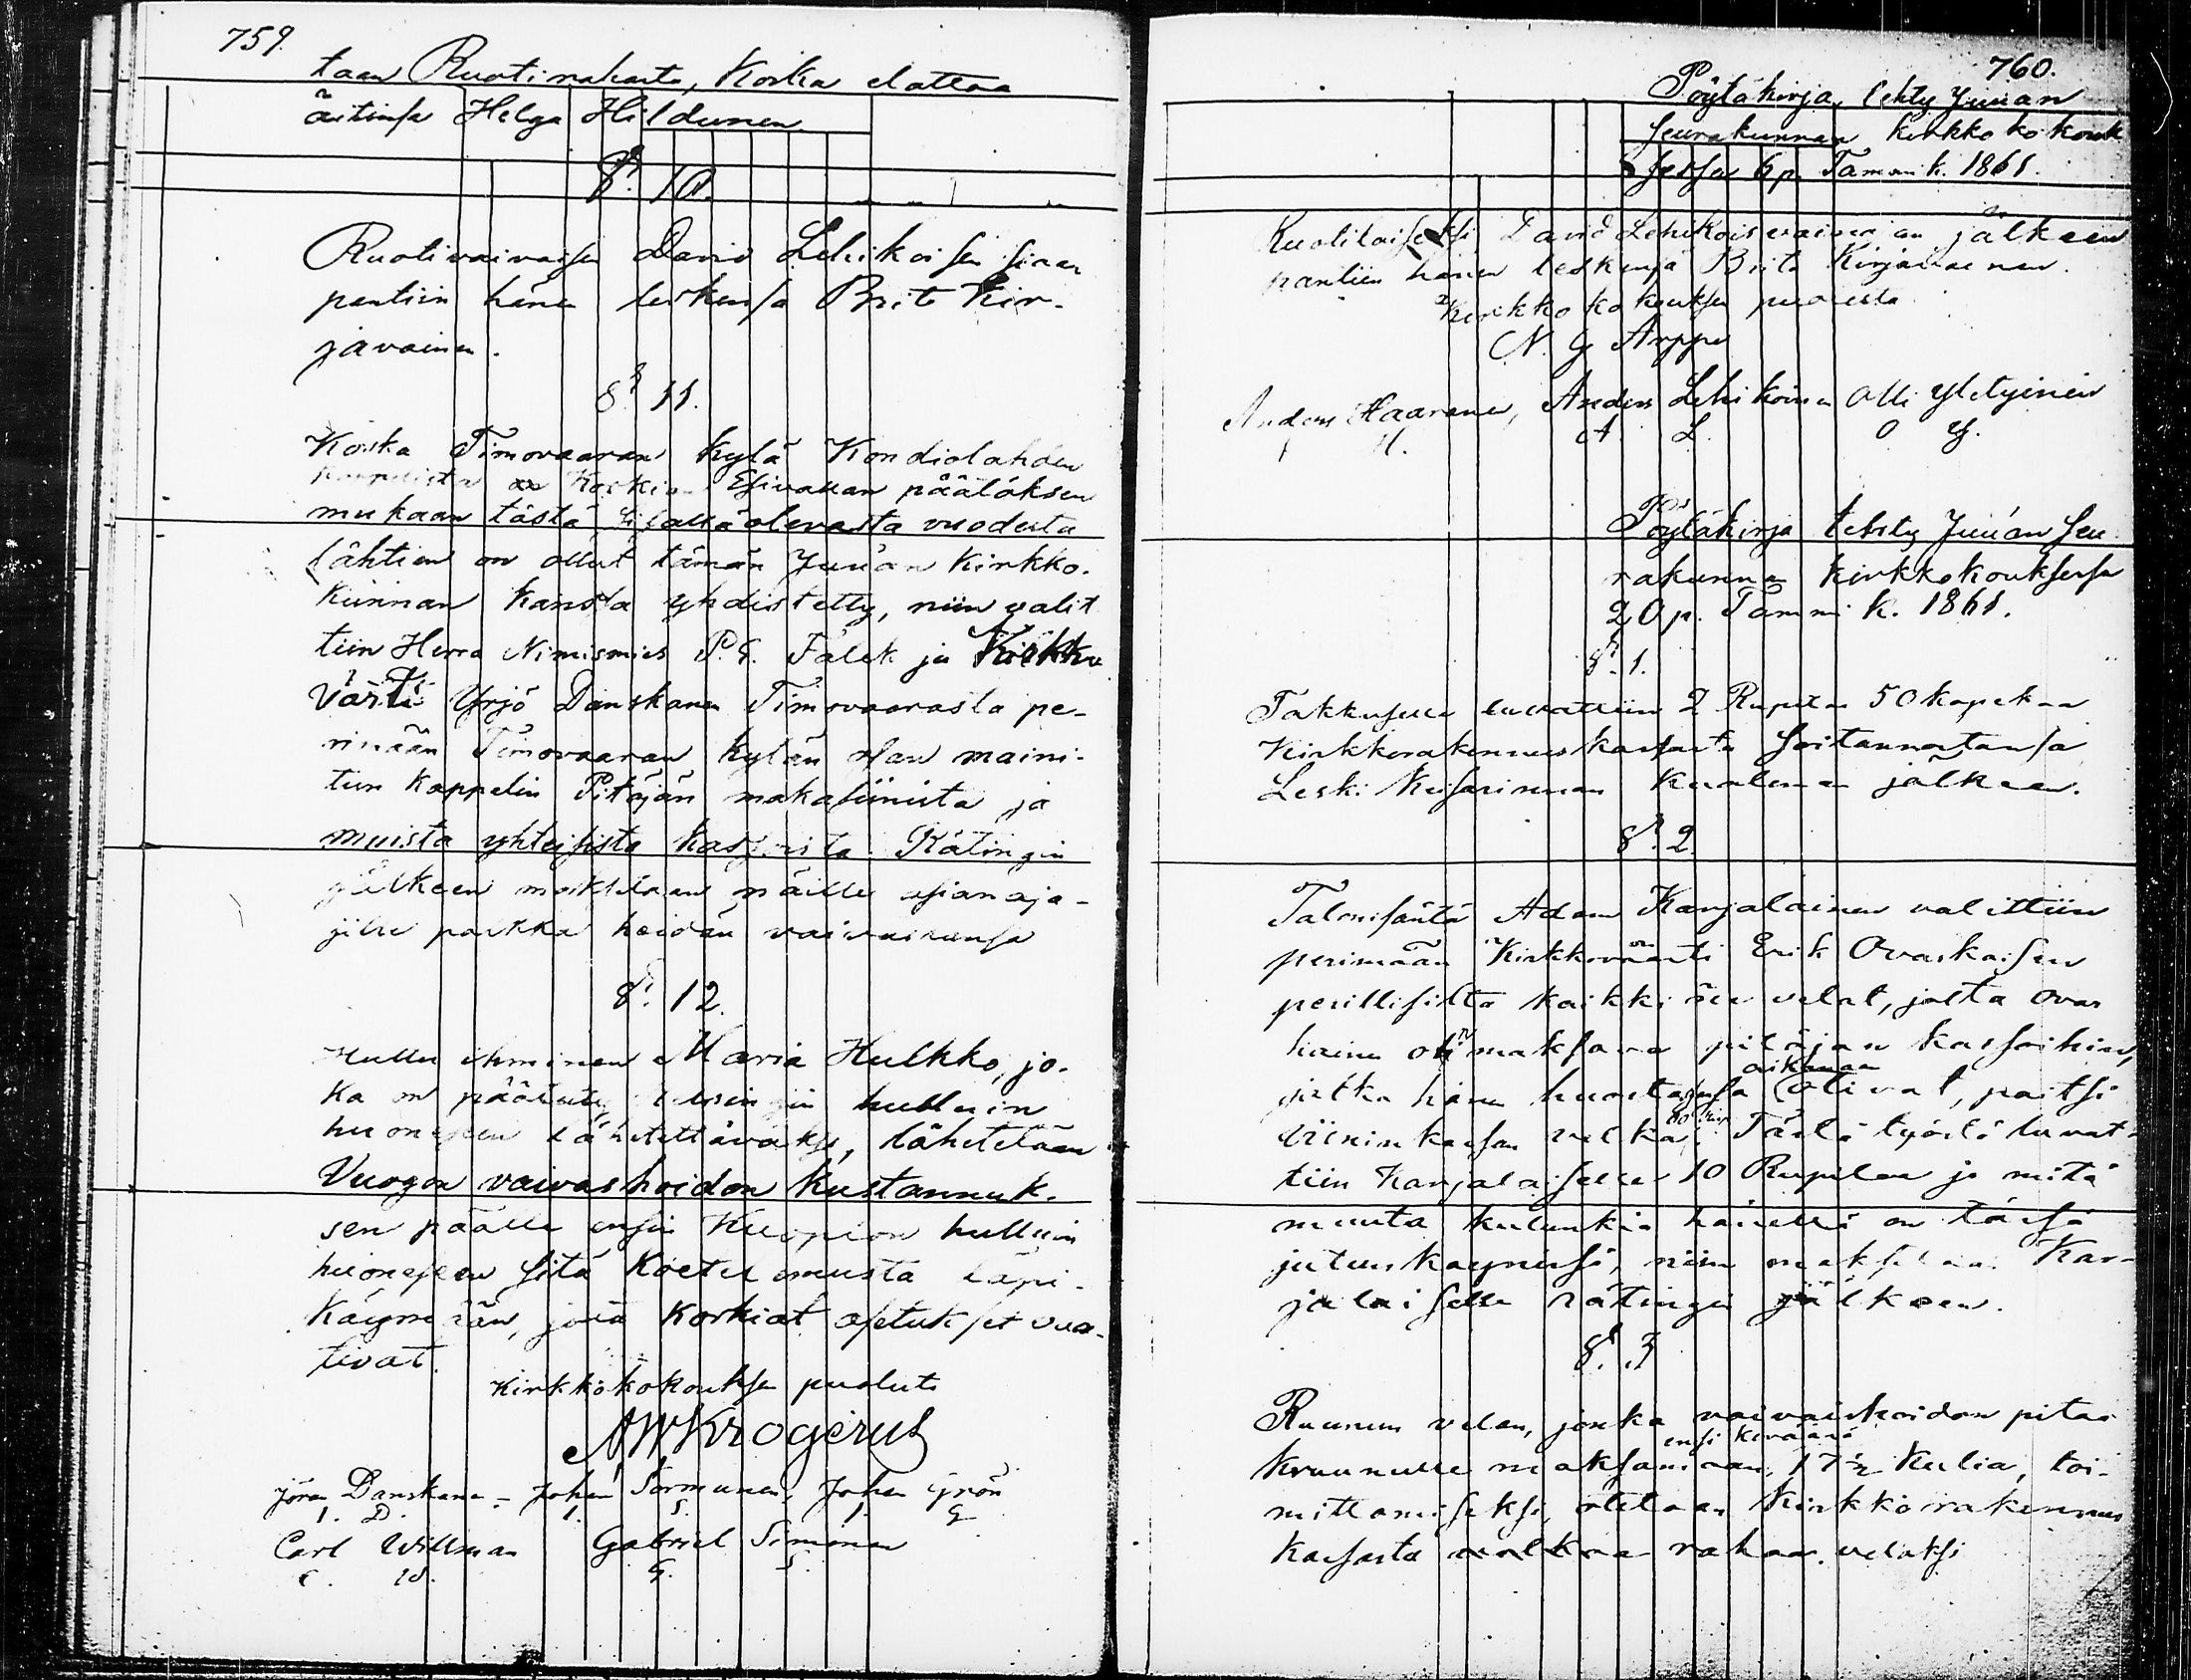 759.
taan Ruotirahasta, Koska elattaa
äitinsä Helga Hildunen
§. 10.
Ruotivaivaisen David Lehikoisen siaan
pantiin hänen leskensä Brita Kir-
javainen.
§. 11.
Koska Timovaaran kylä Kondiolahden
Korkian Esivallan päätöksen
mukaan tästä sisälläolevasta vuodesta
lähtien on ollut tämän Juuan Kirkko-
kunnan kanssa yhdistetty, niin valit
tiin Herra Nimismies P. G. Falck ja Kirkko
Värti Yrjö Danskanen Timovaarasta pe-
rimään Timovaaran kylän osan maini-
tun Kappelin Pitäjän makasiinista ja
muista yhteisistä kassoista. Rätingin
jälkeen maksetaan näille asianaja-
jille palkka heidän vaivaisensa
§. 12.
Hullu ihminen Maria Hulkko, jo-
ka on päätetty hulluin
huoneseen lähetettäväksi, lähetetään
Vuogon vaivashoidon kustannuk-
sen päälle ensin Kuopion hulluin
huoneseen sitä koetelemusta läpi-
käymään, jota Korkiat asetukset vaa-
tivat.
Kirkkokokouksen puolesta
AWKrogerus
Jöran Danskanen - Johan Sormunen, Johan Grön
J. D. J. S. J. G
Carl Willman Gabriel Simonen
C. W. G. S.
760.
Pöytäkirja, tehty Juuan
seurakunnan kirkkokokouk
sessa 6 p. Tammik. 1861.
Ruotilaiseksi David Lehikois vainajan jälkeen
pantiin hänen leskensä Brita Kirjavainen.
Kirkkokokouksen puolesta
N. G Arppe
Anders Haaranen, Anders Lehikoinen Olli Yletyinen
A H. A L. O Y.
Pöytäkirja tehty Juuan seu
rakunnan kirkkokouksessa
20 p. Tammi k. 1861.
§. 1.
Takkuselle luvattiin 2 Ruplaa 50 kopekaa
Kirkkorakennuskassasta soitannostansa
Leski keisarinnan kuoleman jälkeen.
§. 2.
Talonisäntä Adam Karjalainen valittiin
perimään Kirkkovärti Erik Ovaskaisen
perillisiltä kaikki ne velat, joita Ovas
kainen oli maksava pitäjän kassoihin,
jotka hänen huostassansa aikanaan olivat, paitsi
viinin kassan velka. Tästä työstä luvat-
tiin Karjalaiselle 10 Ruplaa ja mitä
muuta kulunkia hänellä on tässä
jutunkäynissä, niin maksetaan Kar-
jalaiselle rätingin jälkeen.
§. 3
Ruunun velan, jonka vaivaishoidon pitää
ensi keväänä
kruunulle maksaman, 17½ Kulia, toi-
mittamiseksi, otetaan Kirkkorakennus
kassasta rahaa velaksi